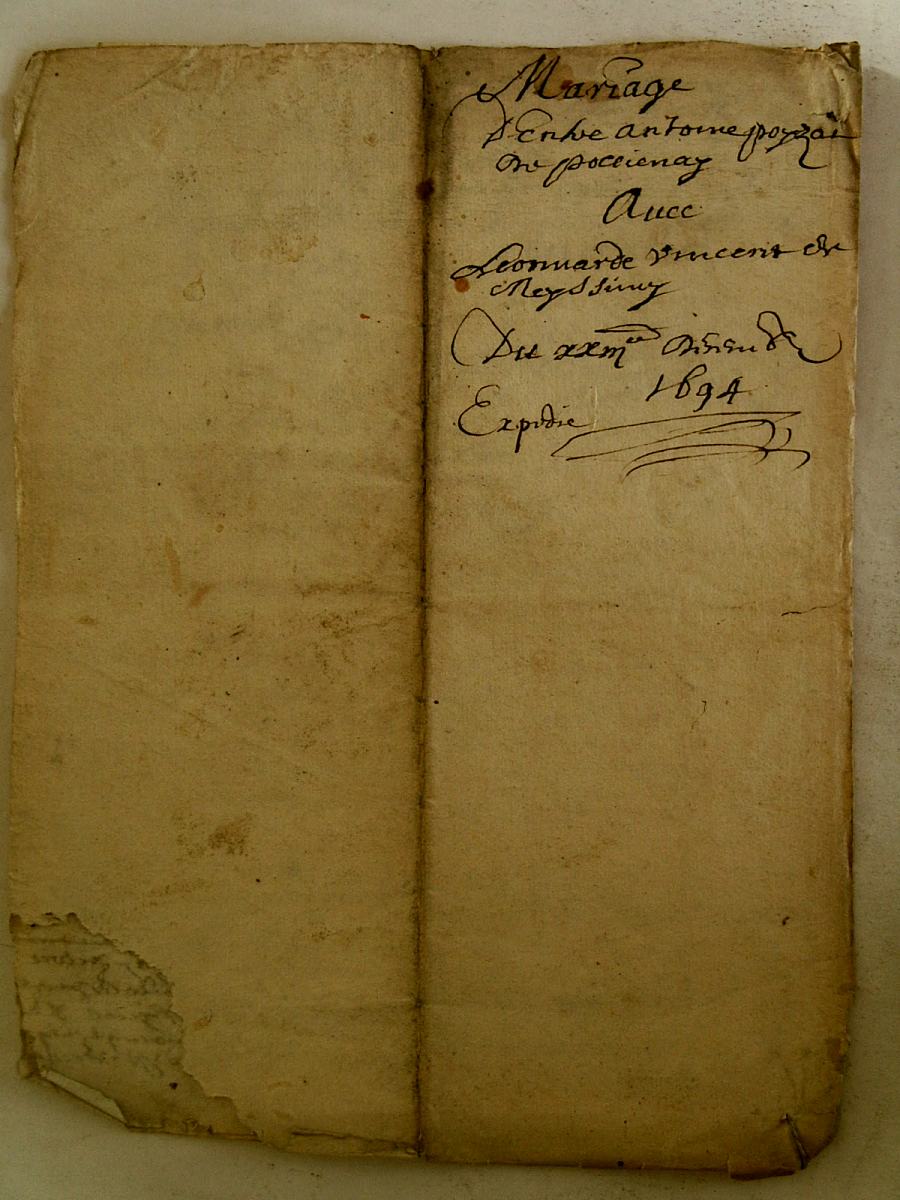 Mariage
D'Entre Antoine poyzat
De pollienay
Avec
Leonnarde Vincent de
Meyssimy
Du xxm^e
1694
Expedie